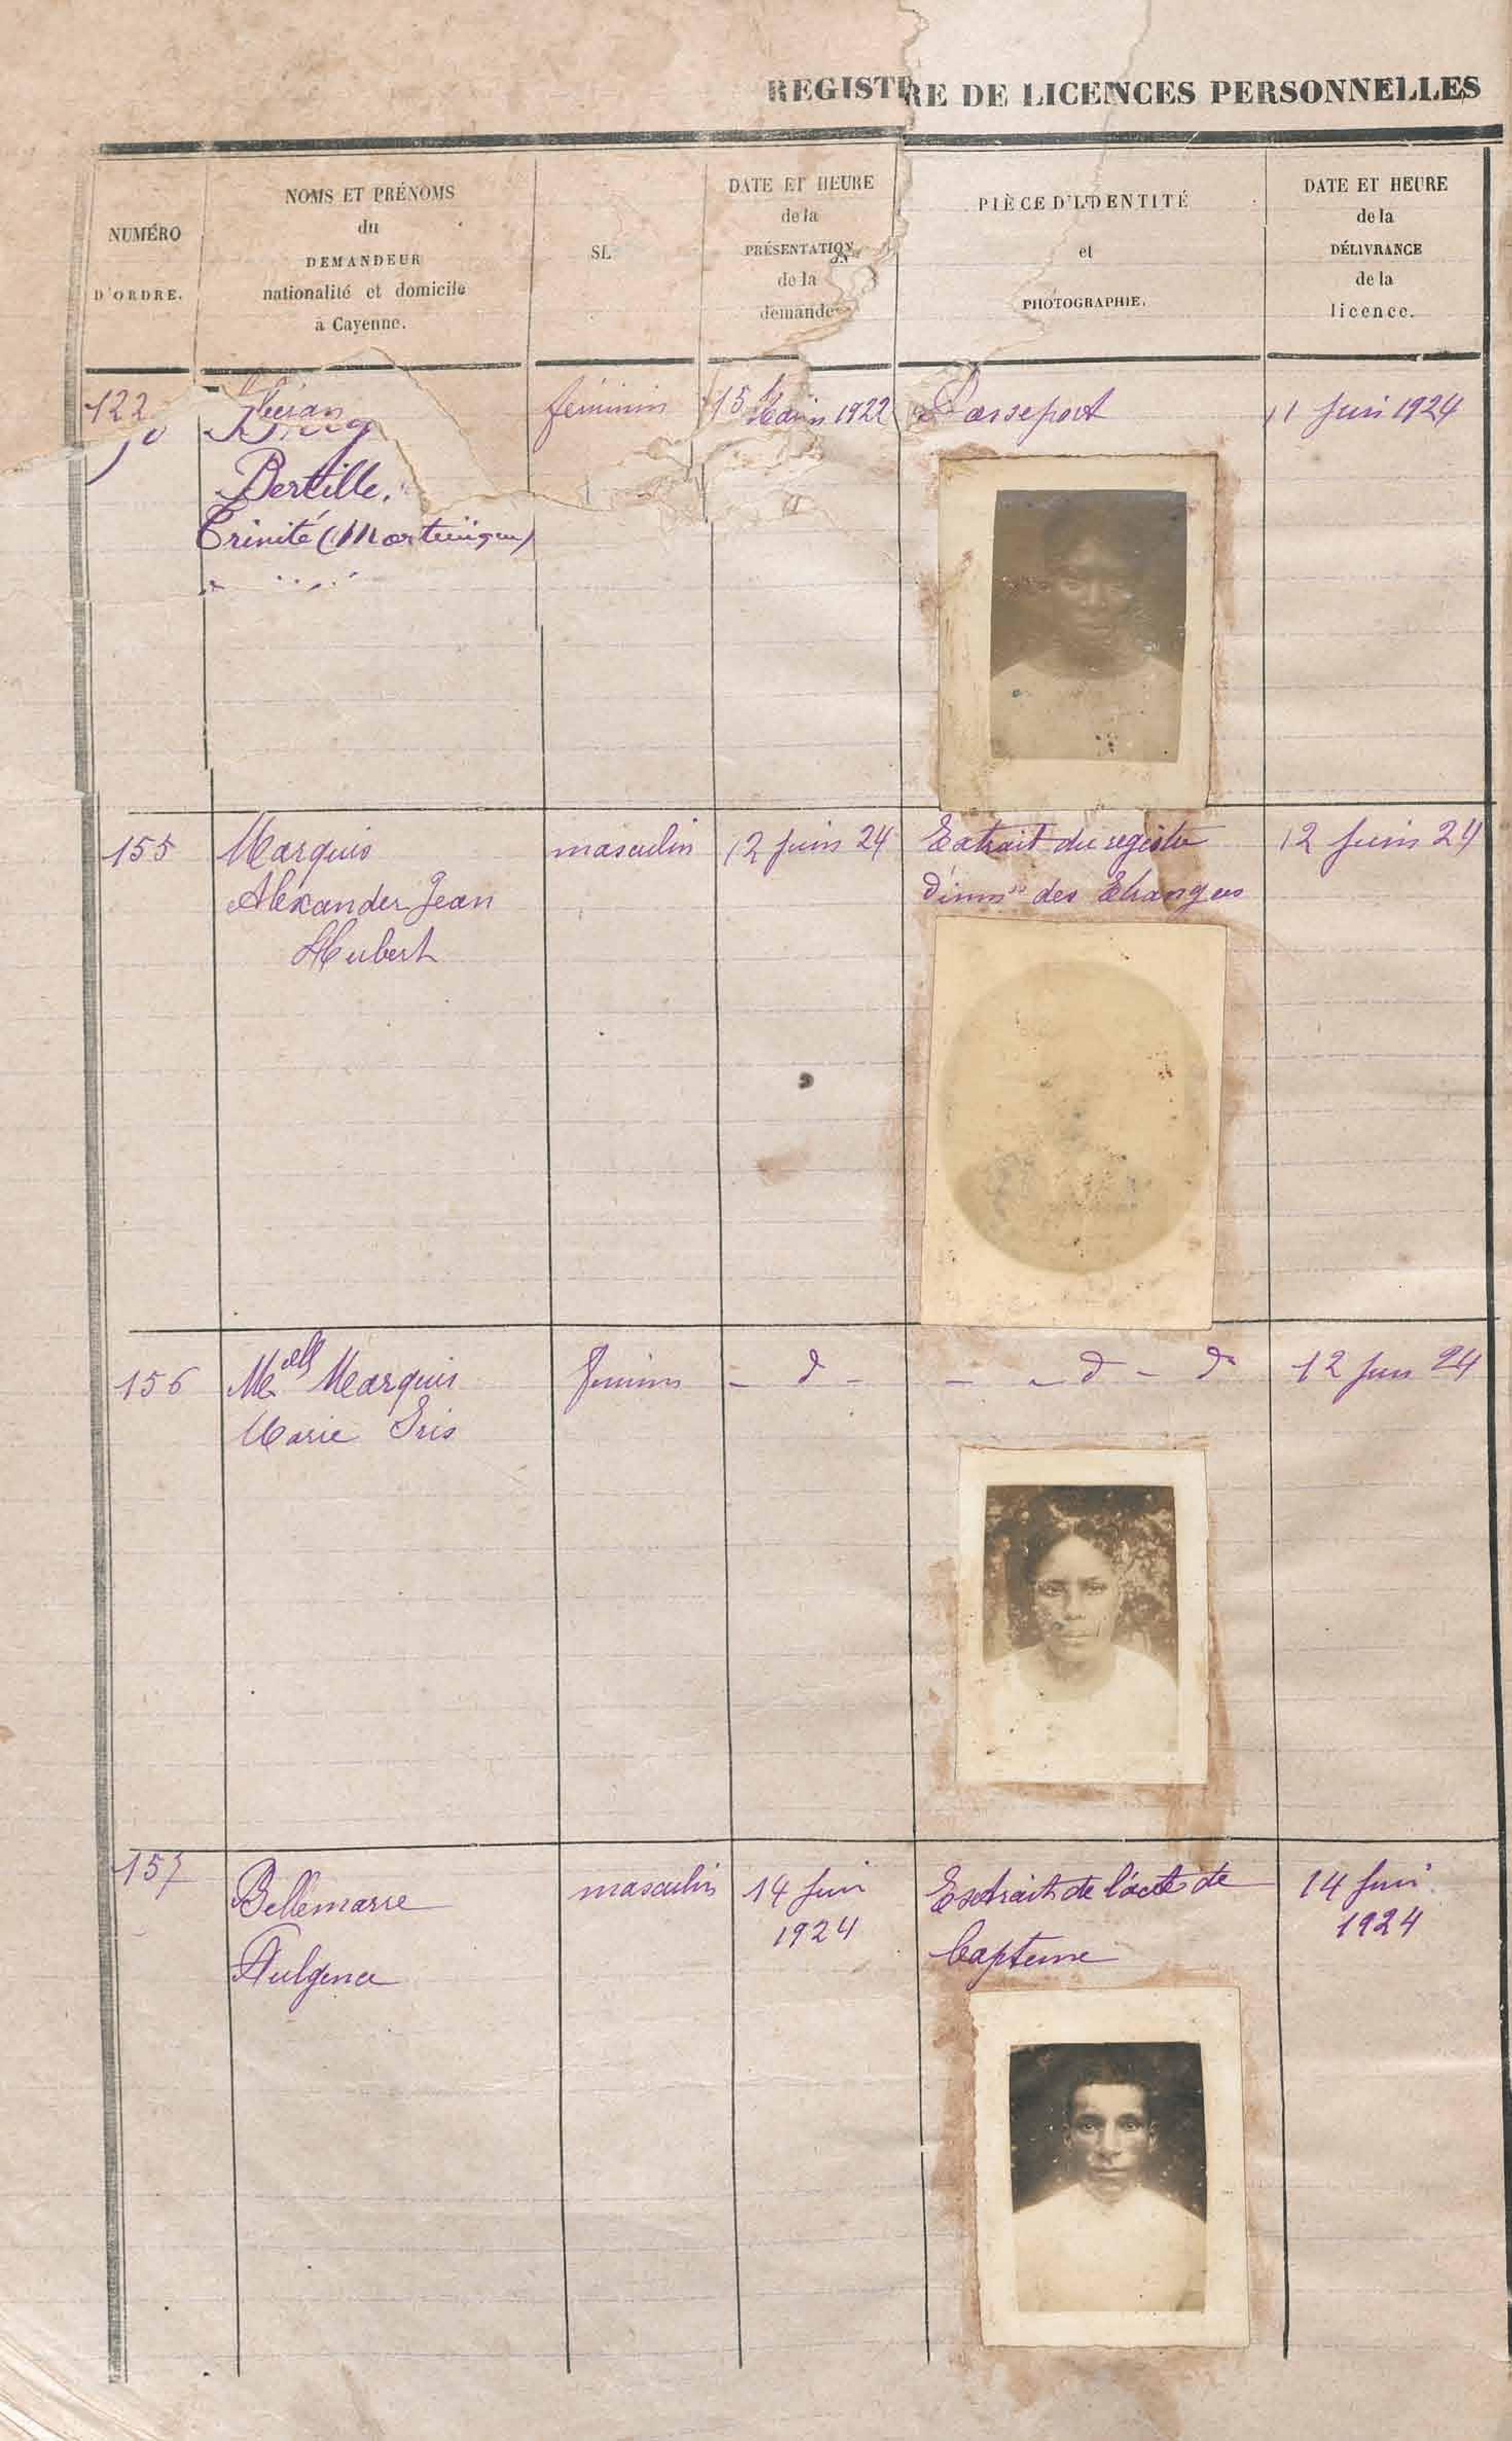 REGISTRE DE LICENCES PERSONNELLES
NUMÉRO
D'ORDRE.
NOMS ET PRÉNOMS
du
DEMANDEUR
nationalité et domicile
à Cayenne.
DATE ET HEURE
de la
PRÉSENTATION
de la
demande
PIÈCE D'IDENTITÉ
et
PHOTOGRAPHIE.
DATE ET HEURE
de la
DÉLIVRANCE
de la
licence.
122 féminin 15 1922 Passeport 11 Juin 1924
Bertille.
Trinité (Martinique)
155 Marquis masculin 12 Juin 24 Extrait du registre 12 Juin 24
Alexander Jean des Etrangers
Hubert
156 Melle Marquis féminin - d - - - d - d° 12 Juin 24
Marie Iris
157 Bellemarre masculin 14 Juin 1924 Extrait de l'acte de 14 Juin 1924
Fulgence baptême